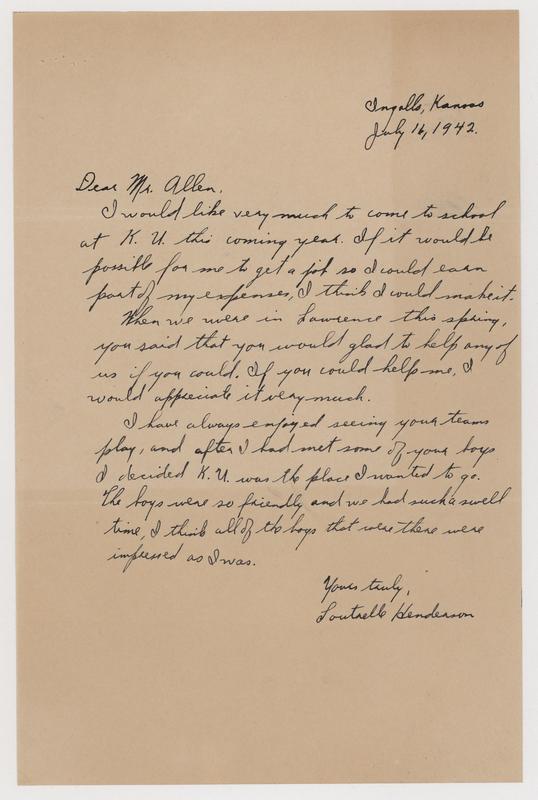 Ingalls, Kansas
July 16, 1942.
Dear Mr. Allen,
I would like very much to come to school
at K. U. this coming year. If it would be
possible for me to get a job so I could earn
part of my expenses, I think I could make it.
When we were in Lawrence this spring,
you said that you would glad to help any of
us if you could. If you could help me, I
would appreciate it very much.
I have always enjoyed seeing your teams
play, and after I had met some of your boys
I decided K. U. was the place I wanted to go.
The boys were so friendly and we had such a swell
time, I think all of the boys that were there were
impressed as I was.
Yours truly,
Loutrelle Henderson